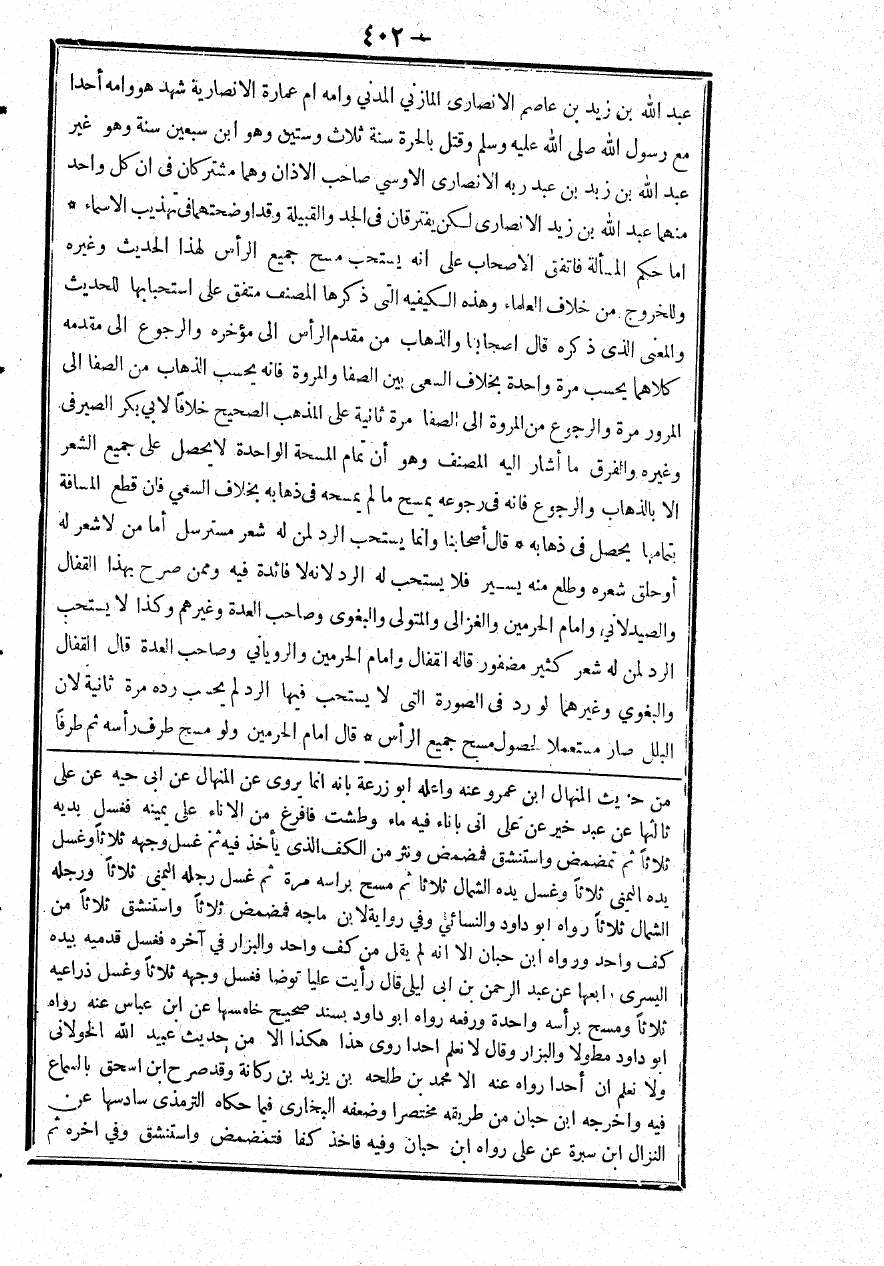 — ٤٠٢
عبد الله بن زيد بن عاصم الانصارى المازني المدني وامه ام عمارة الانصارية شهد هووامه أحدا
مع رسول الله صلى الله عليه وسلم وقتل بالحرة سنة ثلاث وستين وهو ابن سبعين سنة وهو غير
عبد الله بن زيد بن عبد ربه الانصارى الاوسي صاحب الاذان وهما مشتركان فى ان كل واحد
منهما عبد الله بن زيد الانصارى لكن يفترقان فى الجد والقبيلة وقد اوضحتهما فى تهذيب الاسماء *
اما حكم المسألة فاتفق الاصحاب على انه يستحب مسح جميع الرأس لهذا الحديث وغيره
وللخروج من خلاف العلماء وهذه الكيفيه التى ذكرها المصنف متفق على استحبابها للحديث
والمعنى الذى ذكره قال اصحابنا والذهاب من مقدم الرأس الى مؤخره والرجوع الى مقدمه
كلاهما يحسب مرة واحدة بخلاف السعى بين الصفا والمروة فانه يحسب الذهاب من الصفا الى
المرور مرة والرجوع من المروة الى الصفا مرة ثانية على المذهب الصحيح خلافا لابي بكر الصيرفى
وغيره والفرق ما أشار اليه المصنف وهو أن تمام المسحة الواحدة لا يحصل على جميع الشعر
الا بالذهاب والرجوع فانه فى رجوعه يمسح ما لم يمسحه فى ذهابه بخلاف السعي فان قطع المسافة
بتمامها يحصل فى ذهابه * قال أصحابنا وانما يستحب الرد لمن له شعر مسترسل أما من لا شعر له
أو حلق شعره وطلع منه يسير فلا يستحب له الرد لانه لا فائدة فيه وممن صرح بهذا القفال
والصيدلاني وامام الحرمين والغزالى والمتولى والبغوى وصاحب العدة وغيرهم وكذا لا يستحب
الرد لمن له شعر كثير مضفور قاله القفال وامام الحرمين والروياني وصاحب العدة قال القفال
والبغوي وغيرهما لو رد فى الصورة التى لا يستحب فيها الرد لم يحسب رده مرة ثانية لان
البلل صار مستعملا لحصول مسح جميع الرأس * قال امام الحرمين ولو مسح طرف رأسه ثم طرفاً
من حديث المنهال ابن عمرو عنه واعله ابو زرعة بانه انما يروى عن المنهال عن ابى حيه عن على
ثالثها عن عبد خير عن على انى باناء فيه ماء وطشت فافرغ من الاناء على يمينه فغسل يديه
ثلاثاً ثم تمضمض واستنشق فمضمض ونثر من الكف الذى يأخذ فيه ثم غسل وجهه ثلاثاً وغسل
يده اليمنى ثلاثاً وغسل يده الشمال ثلاثا ثم مسح براسه مرة ثم غسل رجله اليمنى ثلاثاً ورجله
الشمال ثلاثاً رواه ابو داود والنسائي وفي رواية لابن ماجه فمضمض ثلاثاً واستنشق ثلاثاً من
كف واحد ورواه ابن حبان الا انه لم يقل من كف واحد والبزار في آخره فغسل قدميه بيده
اليسرى رابعها عن عبد الرحمن بن ابى ليلى قال رأيت عليا توضا فغسل وجهه ثلاثاً وغسل ذراعيه
ثلاثاً ومسح برأسه واحدة ورفعه رواه ابو داود بسند صحيح خامسها عن ابن عباس عنه رواه
ابو داود مطولا والبزار وقال لا نعلم احدا روى هذا هكذا الا من حديث عبيد الله الخولانى
ولا نعلم ان أحدا رواه عنه الا محمد بن طلحه بن يزيد بن ركانة وقد صرح ابن اسحق بالسماع
فيه واخرجه ابن حبان من طريقه مختصرا وضعفه البخارى فيما حكاه الترمذى سادسها عن
النزال ابن سبرة عن على رواه ابن حبان وفيه فاخذ كفا فتمضمض واستنشق وفي اخره ثم